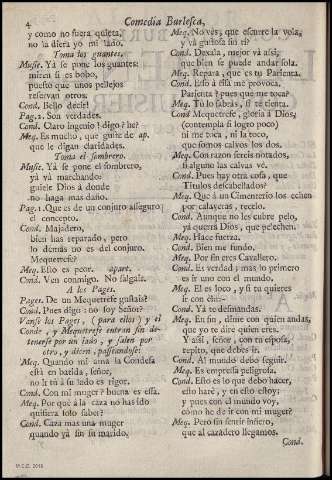 4
Comedia Burlesca,
y como no fuera quieta,
no la diera yo mi lado.
Toma los guantes.
Music. Yá se pone los guantes:
miren si es bobo,
puesto que unos pellejos
reservan otros.
Cond. Bello decir!
Pag. 2. Son verdades.
Cond. Claro ingenio! digo? he?
Meq. Es mucho, que guste de ap.
que le digan claridades.
Toma el sombrero.
Music. Yá se pone el sombrero,
ya vá marchando
guiele Dios á donde
no haga mas daño.
Pag. 1. Que es de un conjuro asseguro;
el concepto.
Cond. Majadero,
bien has reparado, pero
lo demás no es del conjuro.
Mequetrefe?
Meq. Esto es peor. aparte.
Cond. Ven conmigo. No salgais.
A los Pages.
Pages. De un Mequetrefe gustais?
Cond. Pues digo: no soy señor?
Vanse los Pages, (para ellos) y el
Conde, y Mequetrefe entran sin de-
tenerse por un lado, y salen por
otro, y dicen, passeandose:
Meq. Quando mi ama la Condesa
está en batida, señor,
no ir tú á su lado es rigor.
Cond. Con mi muger? buena es essa.
Meq. Por qué á la caza no has ido
quisiera solo saber?
Cond. Caza mas una muger
quando yá sin su marido.
Meq. No ves, que escurre la vola,
y vá gustosa sin ti?
Cond. Dexala, mejor vá assi;
que bien se puede andar sola.
Meq. Repara, que es tu Parienta.
Cond. Esso á ella me provoca,
Parienta? pues qué me toca?
Meq. Tú lo sabrás, si te tienta.
Cond Mequetrefe, gloria á Dios;
(contempla si logro poco)
ni me toca, ni la toco,
que somos calvos los dos.
Meq. Con razon sereis notados,
si alguno las calvas vé.
Cond. Pues hay otra cosa, que
Titulos descalbados?
Meq. Que á un Cimenterio los echen
por calaveras, recelo.
Cond. Aunque no les cubre pelo,
yá querrá Dios, que pelechen.
Meq. Hace fuerza.
Cond. Bien me fundo.
Meq. Por fin eres Cavallero.
Cond. Es verdad; mas lo primero
es ir uno con el mundo.
Meq. El es loco, y si tu quieres
ir con él
Cond. Yá te desmandas.
Meq. En fin, dime con quien andas,
que yo te dire quien eres.
Y assi, señor, con tu esposa,
repito, que debes ir.
Cond. Al mundo debo seguir.
Meq. Es empresa peligrosa.
Cond. Esto es lo que debo hacer,
esto haré, y en esto estoy:
y pues con el mundo voy,
cómo he de ir con mi muger?
Meq. Pero sin sentir insiero,
que al cazadero llegamos.
Cond.